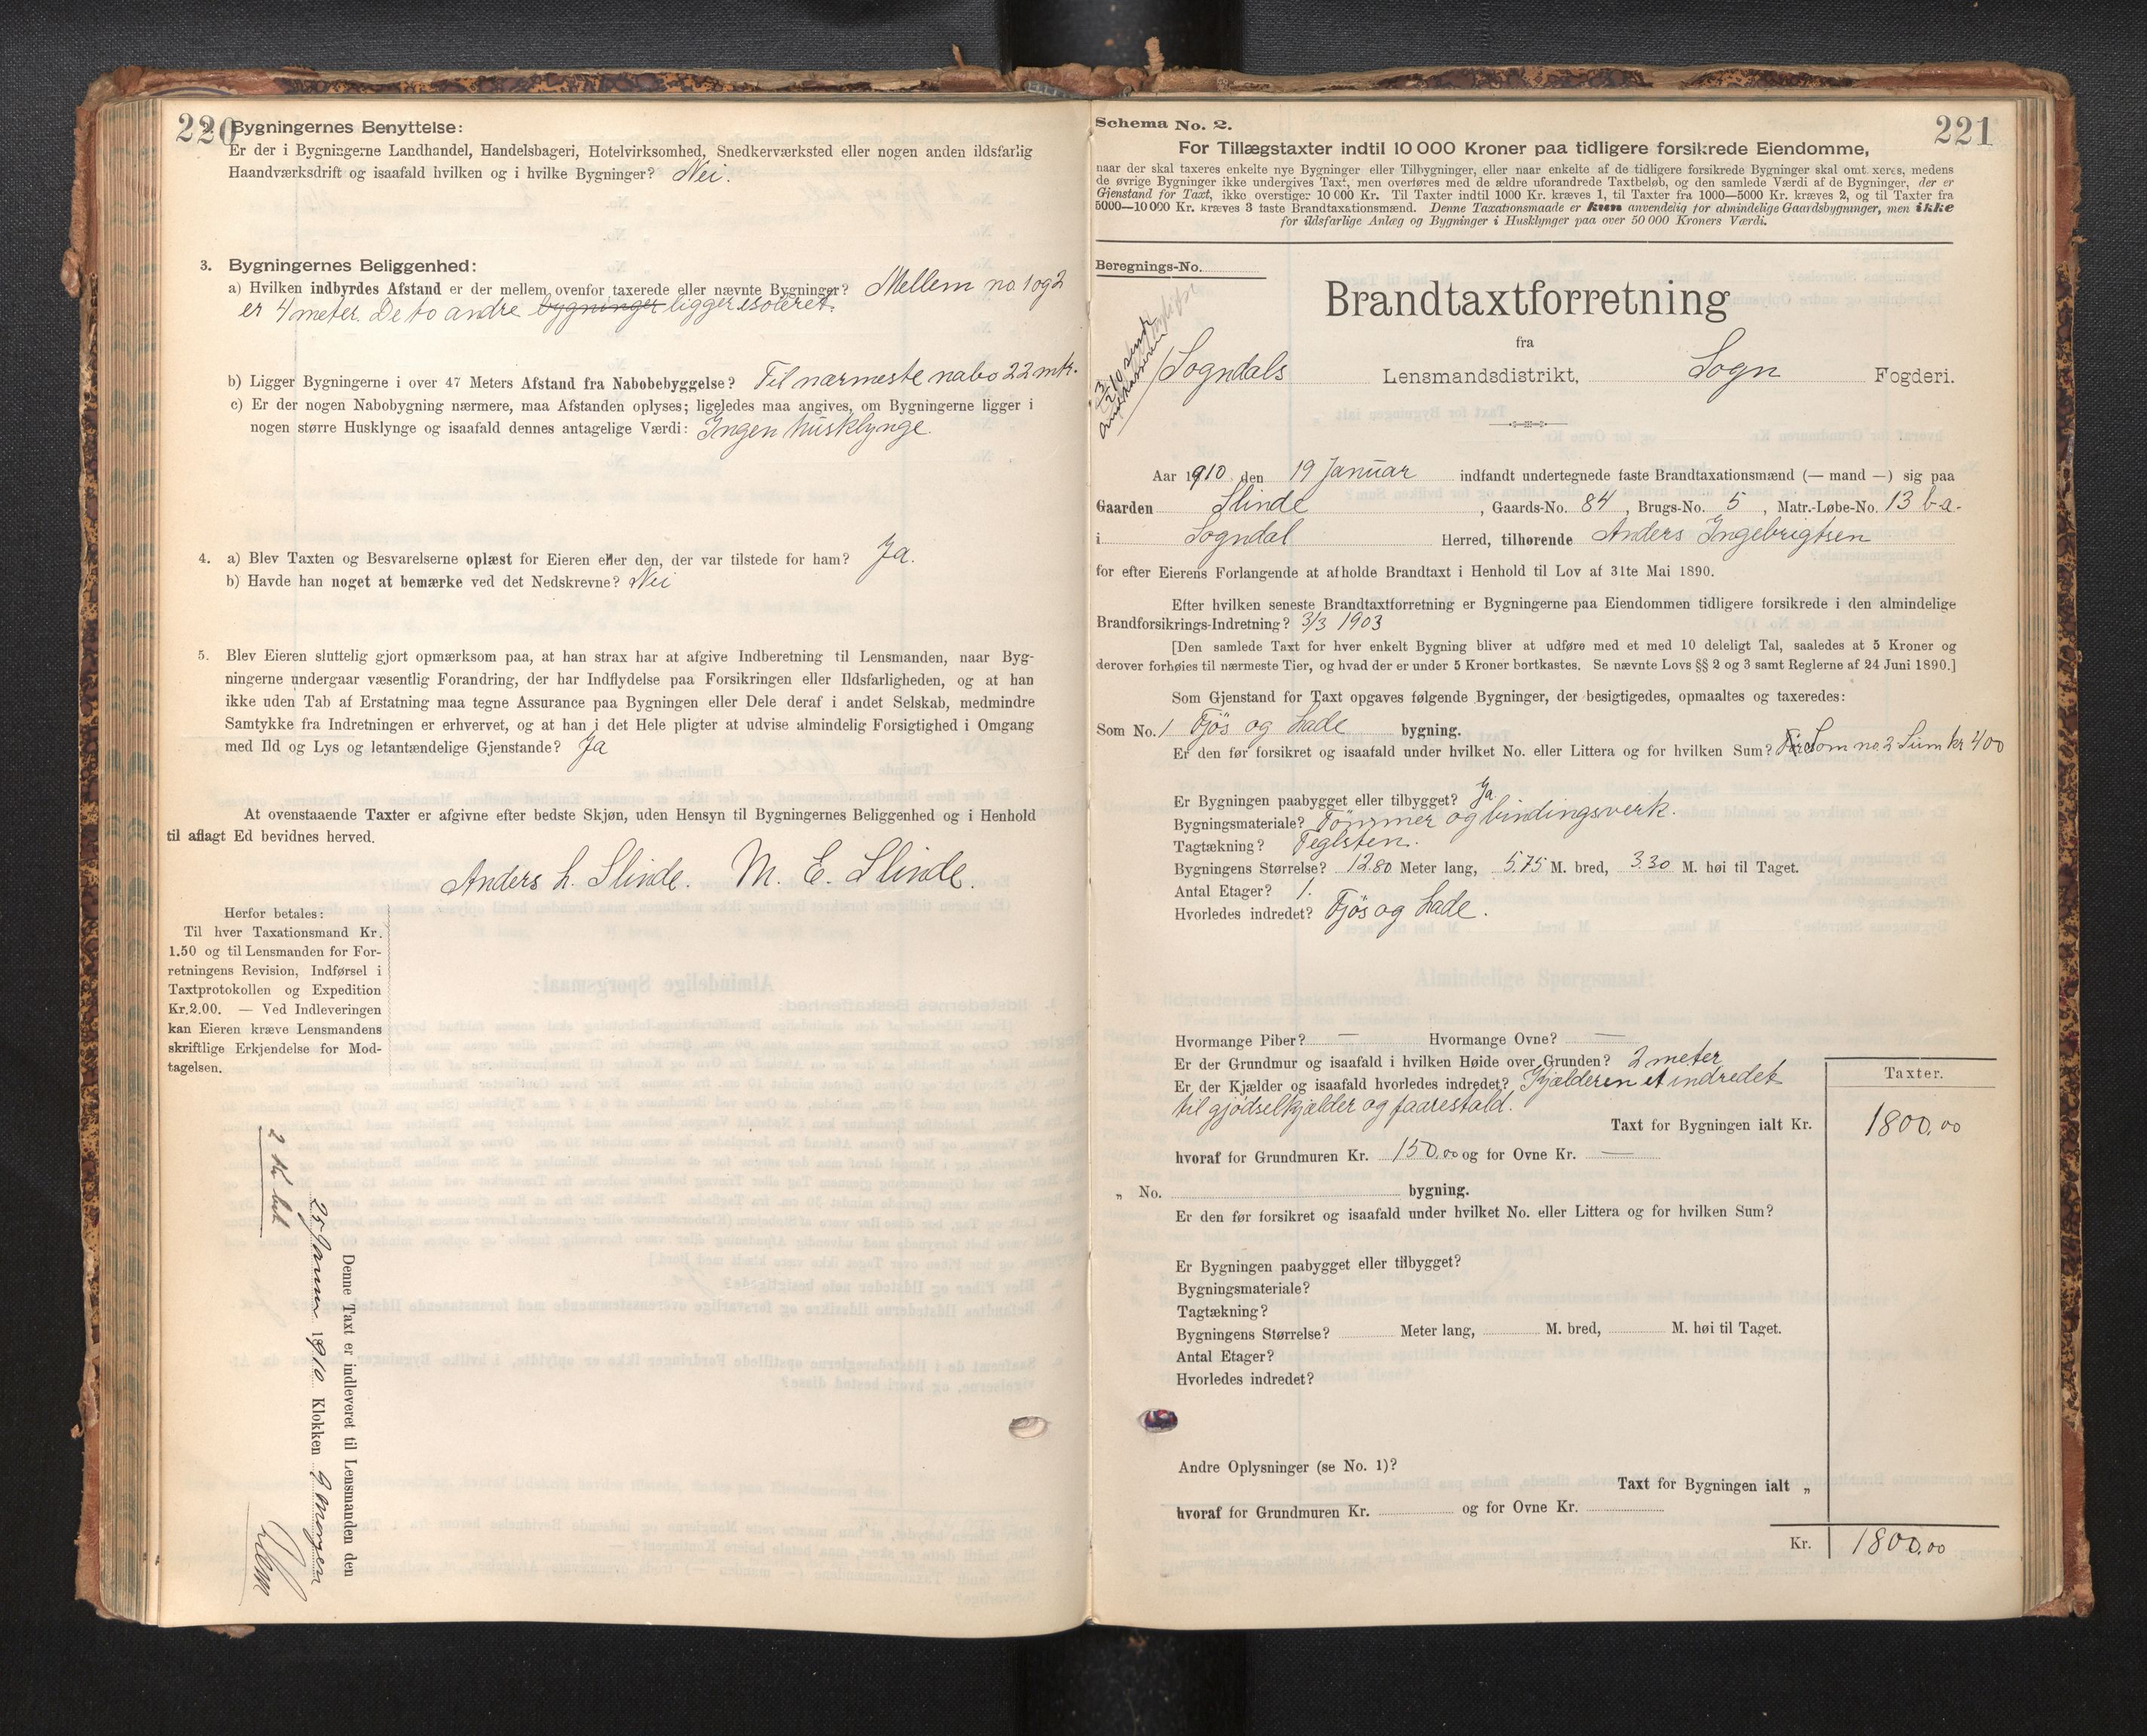 220
Bygningernes Benyttelse:
Er der i Bygningerne Landhandel, Handelsbageri, Hotelvirksomhed, Snedkerværksted eller nogen anden ildsfarlig
Haandværksdrift og isaafald hvilken og i hvilke Bygninger? Nei.
3. Bygningernes Beliggenhed:
a) Hvilken indbyrdes Afstand er der mellem ovenfor taxerede eller nævnte Bygninger? Mellem no. 1 og 2
er 4 meter. De to andre bygninger ligger isoleret.
b) Ligger Bygningerne i over 47 Meters Afstand fra Nabobebyggelse? Til nærmeste nabo 22 mtr.
c) Er der nogen Nabobygning nærmere, maa Afstanden oplyses; ligeledes maa angives, om Bygningerne ligger i
nogen større Husklynge og isaafald dennes antagelige Værdi: Ingen husklynge.
4. a) Blev Taxten og Besvarelserne oplæst for Eieren eller den, der var tilstede for ham? Ja.
b) Havde han noget at bemærke ved det Nedskrevne? Nei
5. Blev Eieren sluttelig gjort opmærksom paa, at han strax har at afgive Indberetning til Lensmanden, naar Byg-
ningerne undergaar væsentlig Forandring, der har Indflydelse paa Forsikringen eller Ildsfarligheden, og at han
ikke uden Tab af Erstatning maa tegne Assurance paa Bygningen eller Dele deraf i andet Selskab, medmindre
Samtykke fra Indretningen er erhvervet, og at han i det Hele pligter at udvise almindelig Forsigtighed i Omgang
med Ild og Lys og letantændelige Gjenstande? Ja
At ovenstaaende Taxter er afgivne efter bedste Skjøn, uden Hensyn til Bygningernes Beliggenhed og i Henhold
til aflagt Ed bevidnes herved.
Anders L. Slinde. M. E. Slinde.
Herfor betales:
Til hver Taxationsmand Kr.
1.50 og til Lensmanden for For-
retningens Revision, Indførsel i
Taxtprotokollen og Expedition
Kr. 2.00. — Ved Indleveringen
kan Eieren kræve Lensmandens
skriftlige Erkjendelse for Mod-
tagelsen.
Denne Taxt er indleveret til Lensmanden den
25 Januar 1910 Klokken 9 morgen
2 Kr. bet
221
Schema No. 2.
For Tillægstaxter indtil 10 000 Kroner paa tidligere forsikrede Eiendomme,
naar der skal taxeres enkelte nye Bygninger eller Tilbygninger, eller naar enkelte af de tidligere forsikrede Bygninger skal omt xeres, medens
de øvrige Bygninger ikke undergives Taxt, men overføres med de ældre uforandrede Taxtbeløb, og den samlede Værdi af de Bygninger, der er
Gjenstand for Taxt, ikke overstiger 10 000 Kr. Til Taxter indtil 1000 Kr. kræves 1, til Taxter fra 1000—5000 Kr. kræves 2, og til Taxter fra
5000—10 000 Kr. kræves 3 faste Brandtaxationsmænd. Denne Taxationsmaade er kun anvendelig for almindelige Gaardsbygninger, men ikke
for ildsfarlige Anlæg og Bygninger i Husklynger paa over 50 000 Kroners Værdi.
Beregnings-No.
Brandtaxtforretning
fra
Sogndals Lensmandsdistrikt, Sogn Fogderi.
Aar 1910 den 19 Januar indfandt undertegnede faste Brandtaxationsmænd (— mand —) sig paa
Gaarden Slinde, Gaards-No. 84, Brugs-No. 5, Matr.-Løbe-No. 13 b-a.
i Sogndal Herred, tilhørende Anders Ingebrigtsen
for efter Eierens Forlangende at afholde Brandtaxt i Henhold til Lov af 31te Mai 1890.
Efter hvilken seneste Brandtaxtforretning er Bygningerne paa Eiendommen tidligere forsikrede i den almindelige
Brandforsikrings-Indretning? 3/3 1903
[Den samlede Taxt for hver enkelt Bygning bliver at udføre med et med 10 deleligt Tal, saaledes at 5 Kroner og
derover forhøies til nærmeste Tier, og hvad der er under 5 Kroner bortkastes. Se nævnte Lovs §§ 2 og 3 samt Reglerne af 24 Juni 1890.]
Som Gjenstand for Taxt opgaves følgende Bygninger, der besigtigedes, opmaaltes og taxeredes:
Som No. 1 Fjös og Lade bygning.
Er den før forsikret og isaafald under hvilket No. eller Littera og for hvilken Sum? Som no. 2 Sum kr 400
Er Bygningen paabygget eller tilbygget? Ja
Bygningsmateriale? Tömmer og bindingsverk.
Tagtækning? Teglsten.
Bygningens Størrelse? 12.80 Meter lang, 5.75 M. bred, 3.30 M. høi til Taget.
Antal Etager? 1.
Hvorledes indredet? Fjös og Lade.
Hvormange Piber? — Hvormange Ovne? —
Er der Grundmur og isaafald i hvilken Høide over Grunden? 2 meter
Er der Kjælder og isaafald hvorledes indredet? Kjælderen er indredet
til gjödselkjælder og faarestald.
Taxter.
Taxt for Bygningen ialt Kr. 1800.00
hvoraf for Grundmuren Kr. 150.00 og for Ovne Kr. —
„ No. bygning.
Er den før forsikret og isaafald under hvilket No. eller Littera og for hvilken Sum?
Er Bygningen paabygget eller tilbygget?
Bygningsmateriale?
Tagtækning?
Bygningens Størrelse? Meter lang, M. bred, M. høi til Taget.
Antal Etager?
Hvorledes indredet?
Andre Oplysninger (se No. 1)?
Taxt for Bygningen ialt „
hvoraf for Grundmuren Kr. og for Ovne Kr.
Kr. 1800.00